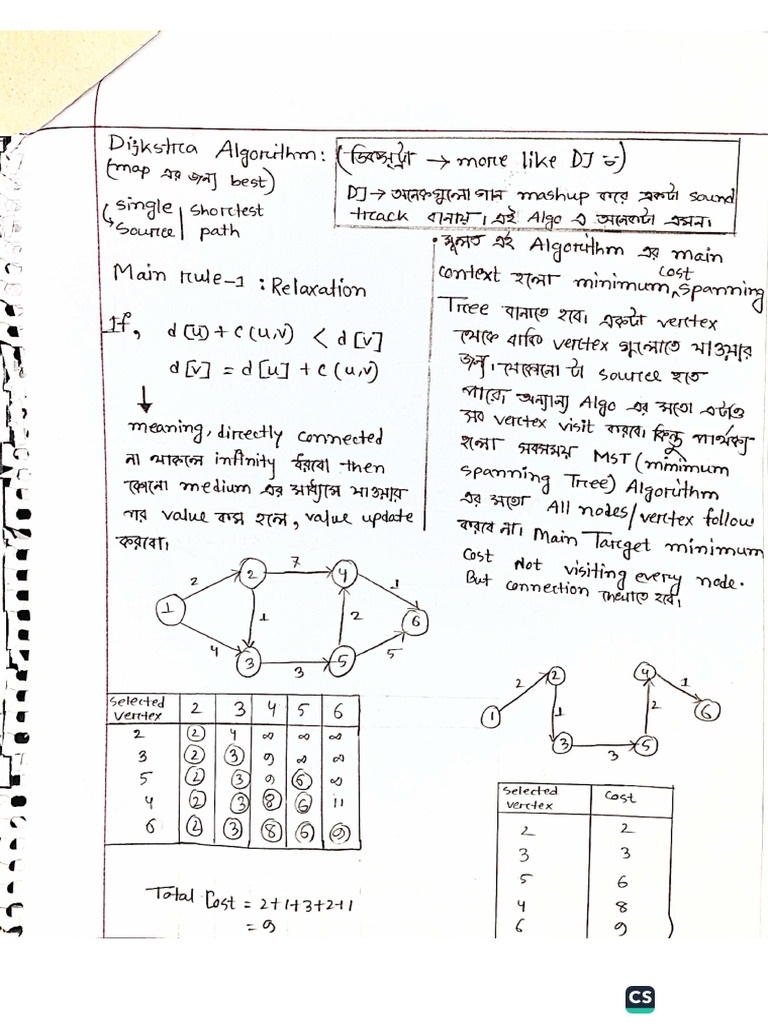 Dijkstra Algorithm:
(map এর জন্য best)
(single | shortest
source | path
(ডিক্সট্রা → more like DJ)
DJ → অনেকগুলো গান mashup করে একটা sound
track বানায়। এই Algo এ অনেকটা এমন।
Main rule-1 : Relaxation
If, d[u] + c(u,v) < d[v]
d[v] = d[u] + c(u,v)
meaning, directly connected
না থাকলে infinity ধরবো then
কোনো medium এর মাধ্যমে যাওয়ার
পর value কম হলে, value update
করবো।
• মূলত এই Algorithm এর main
context হলো minimum cost spanning
Tree বানাতে হবে। একটা vertex
থেকে বাকি vertex গুলোতে যাওয়ার
জন্য। যেকোনো টা source হতে
পারে। অন্যান্য Algo এর মতো এটাও
সব vertex visit করবে। কিন্তু পার্থক্য
হলো সবসময় MST (minimum
spanning Tree) Algorithm
এর মতো All nodes/vertex follow
করবে না। Main Target minimum
cost Not visiting every node.
But connection দেখাতে হবে।
2 7 1
1 2 4 6
4 1 2 5
3 3 5
Selected vertex 2 3 4 5 6
2 2 4 ∞ ∞ ∞
3 2 3 9 ∞ ∞
5 2 3 9 6 ∞
4 2 3 8 6 11
6 2 3 8 6 9
Total Cost = 2+1+3+2+1
= 9
2 2 4 1
1 1 2 6
3 3 5
Selected vertex Cost
2 2
3 3
5 6
4 8
6 9
CS